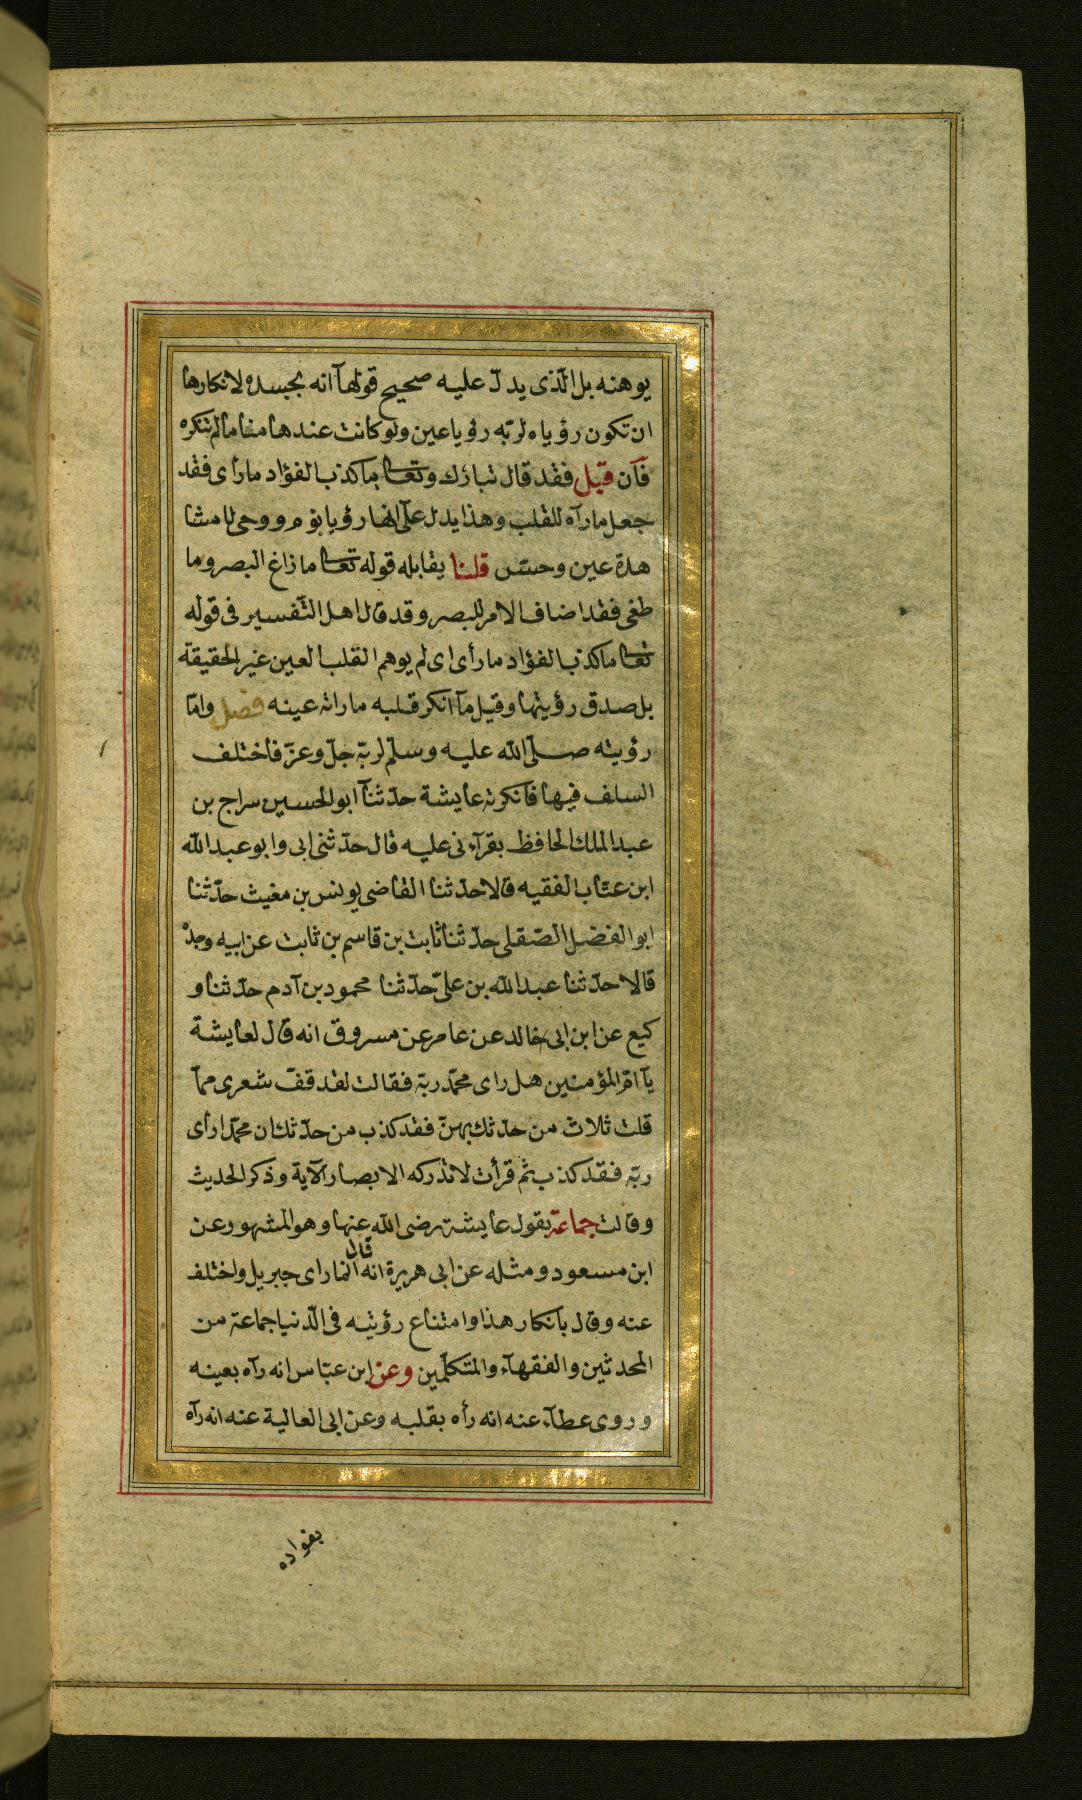 يوهنه بل الّذى يدلّ عليه صحيح قولهآ انه بجسده لانكارها
ان تكون رؤياه لربّه رؤيا عين ولو كانت عندها مناما لم تنكره
فآن قيل فقد قال تبارك وتعالى ما كذب الفؤاد ما رأى فقد
جعل ما رآه للقلب وهذا يدل على انها رؤيا نوم ووحى لا مشا
هدة عين وحسّ قلنا يقابله قوله تعالى ما زاغ البصر وما
طغى فقد اضاف الامر للبصر وقد قال اهل التّفسير فى قوله
تعالى ما كذب الفؤاد ما رأى اى لم يوهم القلب العين غير الحقيقة
بل صدق رؤيتها وقيل مآ انكر قلبه ما راته عينه فصل وامّا
رؤيته صلّى الله عليه وسلّم لربّه جلّ وعزّ فاختلف
السلف فيها فانكرته عايشة حدّثنآ ابو الحسين سراج بن
عبد الملك الحافظ بقرآءتى عليه قال حدّثنى ابى وابو عبد الله
ابن عتّاب الفقيه قالا حدثنا القاضى يونس بن مغيث حدّثنا
ابو الفضل الصّقلى حدّثنا ثابت بن قاسم بن ثابت عن ابيه وجدّه
قالا حدّثنا عبد الله بن علىّ حدّثنا محمود بن آدم حدّثنا و
كيع عن ابن ابى خالد عن عامر عن مسروق انه قال لعايشة
يآ امّ المؤمنين هل راى محمّد ربّه فقالت لقد قفّ شعرى ممّا
قلت ثلاث من حدّثك بهنّ فقد كذب من حدّثك ان محمّدا رأى
ربّه فقد كذب ثم قرأت لا تدركه الابصار الآية وذكر الحديث
وقالت جماعة بقول عايشة رضى الله عنها وهو المشهور عن
ابن مسعود ومثله عن ابى هريرة انه قال انما راى جبريل واختلف
عنه وقال بانكار هذا وامتناع رؤيته فى الدّنيا جماعة من
المحدثين والفقهآء والمتكلّمين وعن ابن عبّاس انه رآه بعينه
وروى عطآء عنه انه رأه بقلبه وعن ابى العالية عنه انه رآه
بفواده